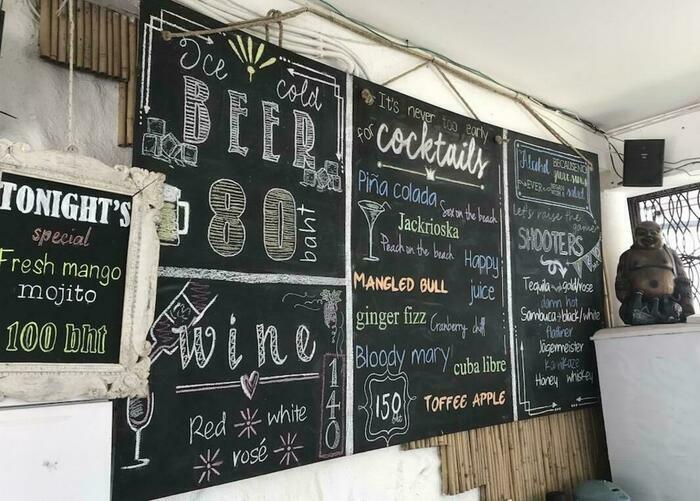 TONIGHT'S
special
Fresh mango
mojito
100 bht
Ice
cold
BEER
80
baht
wine
140
Red white
rosé
It's never too early
for cocktails
Piña colada
Sex on the beach
Jackrioska
Peach on the beach
Happy
juice
MANGLED BULL
ginger fizz
Cranberry chill
Bloody mary
cuba libre
150
TOFFEE APPLE
Alcohol
BECAUSE NO
EVER
salad
Let's raise the
game
SHOOTERS
Tequila gold/rose
damn hot
Sambuca black/white
flatliner
Jägermeister
Kamikaze
Honey whiskey